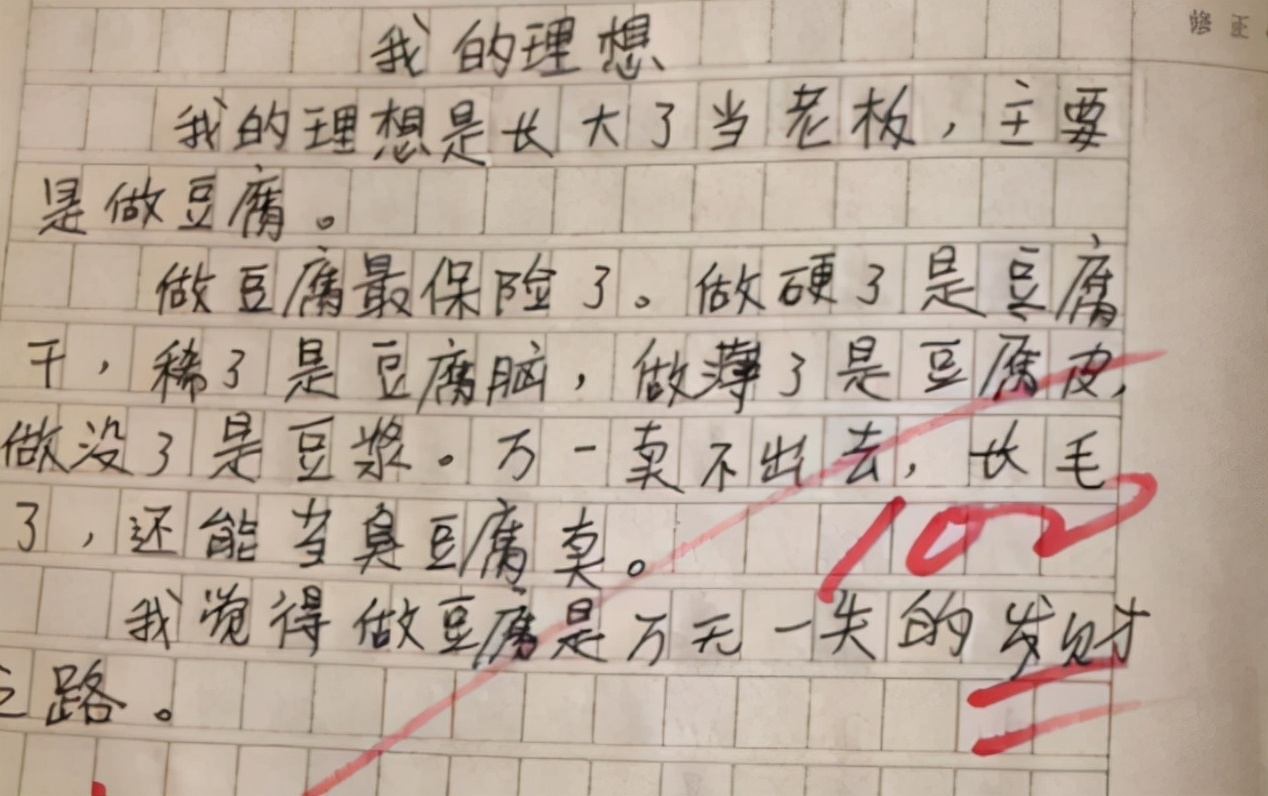 修正
我的理想
我的理想是长大了当老板，主要
是做豆腐。
做豆腐最保险了。做硬了是豆腐
干，稀了是豆腐脑，做薄了是豆腐皮，
做没了是豆浆。万一卖不出去，长毛
了，还能当臭豆腐卖。
100
我觉得做豆腐是万无一失的发财
之路。